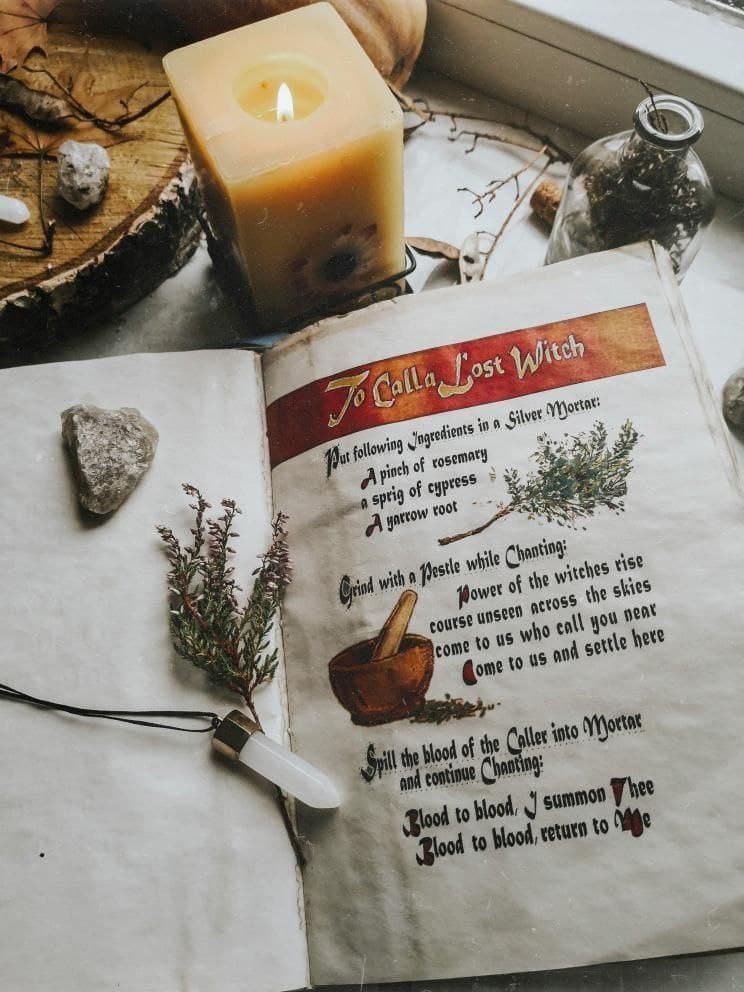 To Call a Lost Witch
Put following Ingredients in a Silver Mortar:
A pinch of rosemary
a sprig of cypress
A yarrow root
Grind with a Pestle while Chanting:
Power of the witches rise
course unseen across the skies
come to us who call you near
Come to us and settle here
Spill the blood of the Caller into Mortar
and continue Chanting:
Blood to blood, I summon Thee
Blood to blood, return to Me